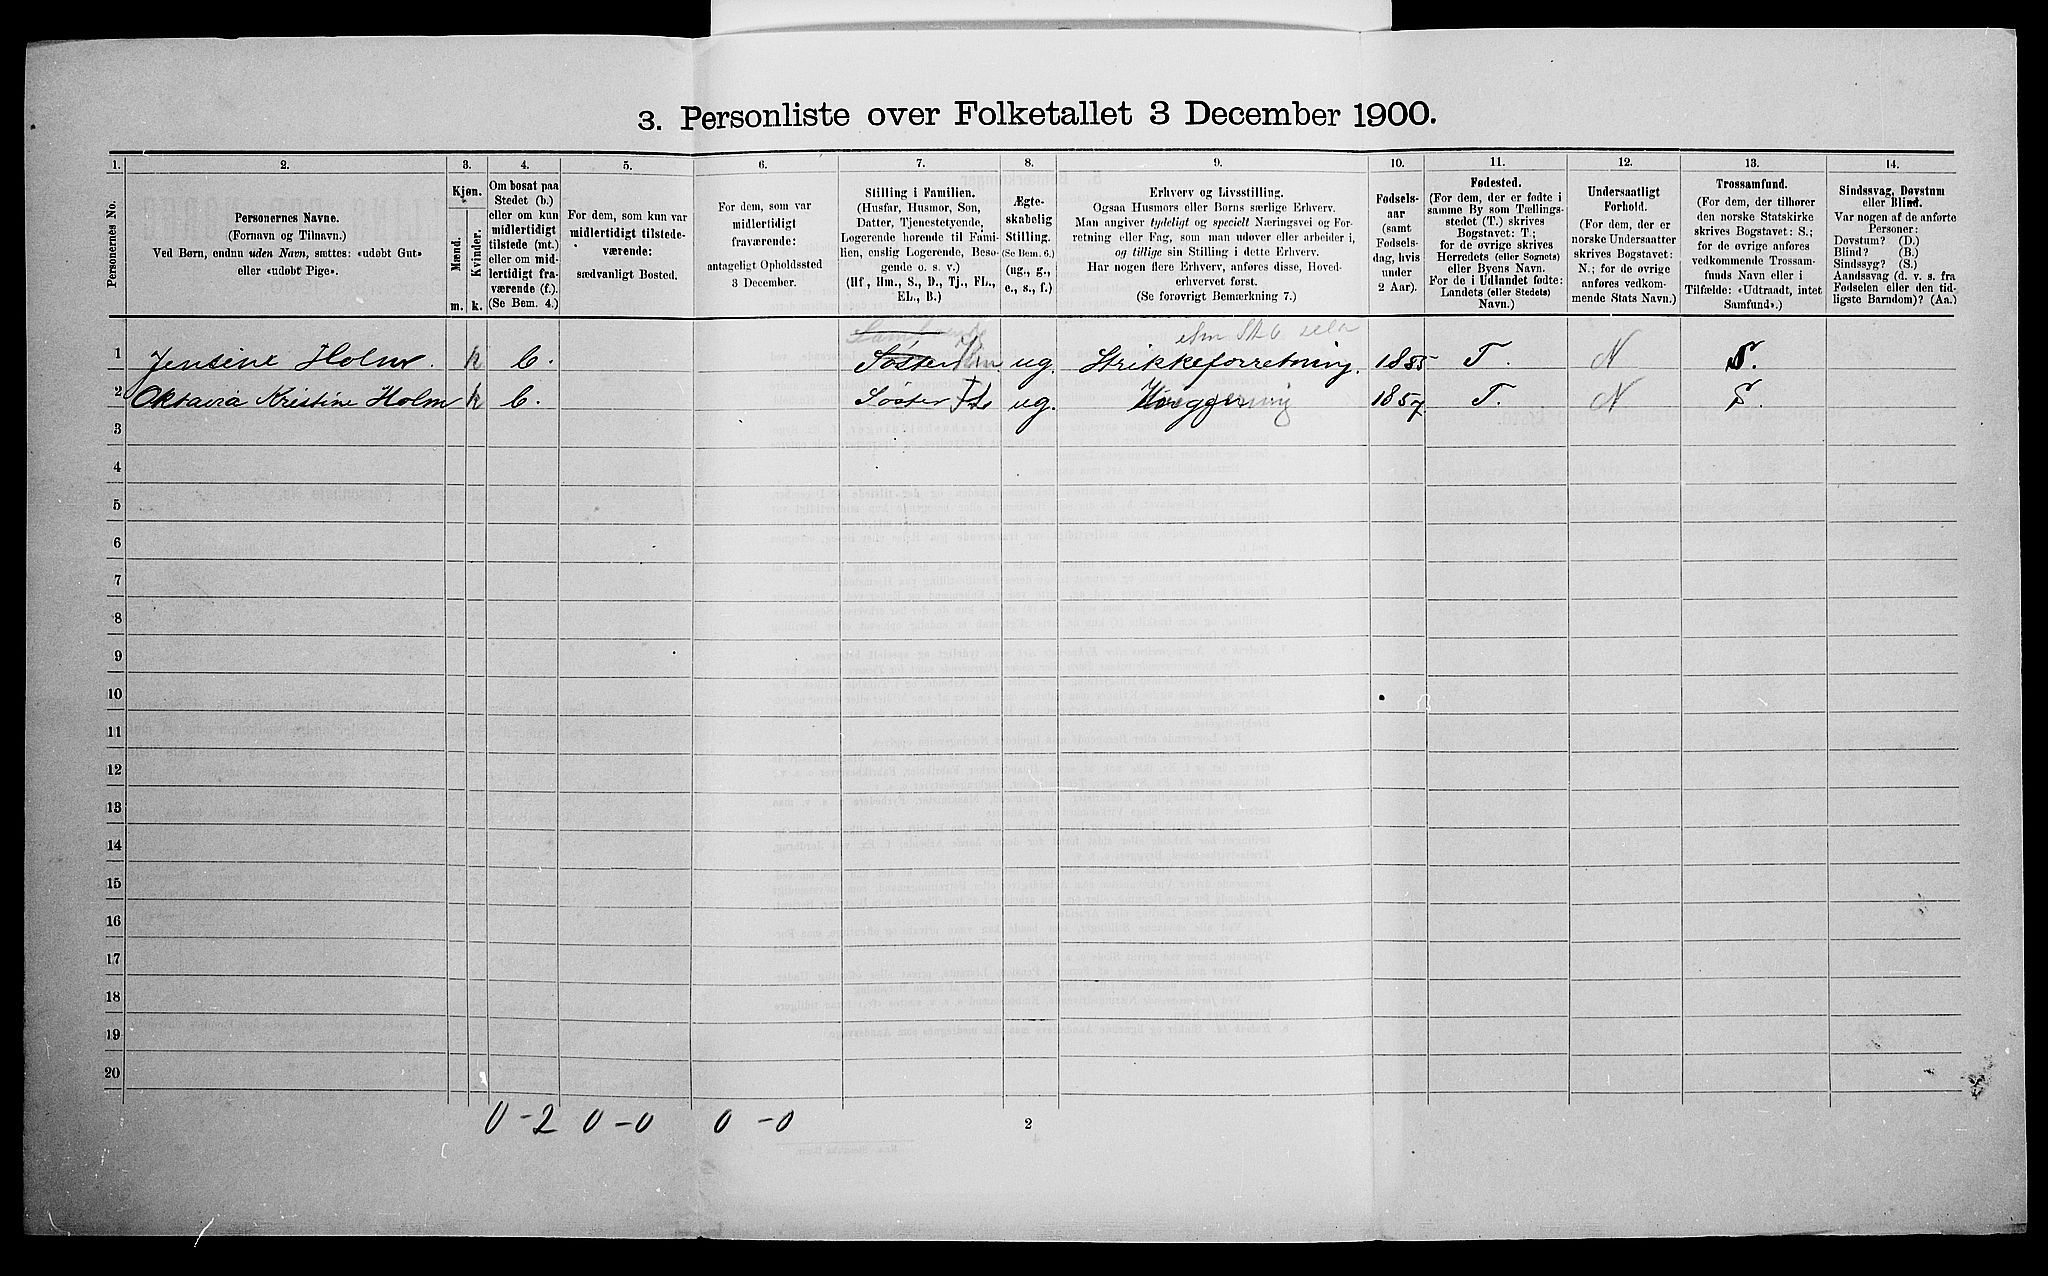 3. Personliste over Folketallet 3 December 1900.
1. 2. 3. 4. 5. 6. 7. 8. 9. 10. 11. 12. 13. 14.
Personernes No.
Personernes Navne.
(Fornavn og Tilnavn.)
Ved Børn, endnu uden Navn, sættes: «udøbt Gut»
eller «udøbt Pige».
Kjøn.
Mænd.
Kvinder.
m. k.
Om bosat paa
Stedet (b.)
eller om kun
midlertidigt
tilstede (mt.)
eller om mid-
lertidigt fra-
værende (f.)
(Se Bem. 4.)
For dem, som kun var
midlertidigt tilstede-
værende:
sædvanligt Bosted.
For dem, som var
midlertidigt
fraværende:
antageligt Opholdssted
3 December.
Stilling i Familien.
(Husfar, Husmor, Søn,
Datter, Tjenestetyende,
Logerende hørende til Fami-
lien, enslig Logerende, Besø-
gende o. s. v.)
(Hf, Hm., S., D., Tj., FL.,
EL., B.)
Ægte-
skabelig
Stilling.
(Se Bem. 6.)
(ug., g.,
e., s., f.)
Erhverv og Livsstilling.
Ogsaa Husmors eller Børns særlige Erhverv.
Man angiver tydeligt og specielt Næringsvei og For-
retning eller Fag, som man udøver eller arbeider i,
og tillige sin Stilling i dette Erhverv.
Har nogen flere Erhverv, anføres disse, Hoved-
erhvervet først.
(Se forøvrigt Bemærkning 7.)
Fødsels-
aar
(samt
Fødsels-
dag, hvis
under
2 Aar).
Fødested.
(For dem, der er fødte i
samme By som Tællings-
stedet (T.) skrives
Bogstavet: T.;
for de øvrige skrives
Herredets (eller Sognets)
eller Byens Navn.
For de i Udlandet fødte:
Landets (eller Stedets)
Navn.)
Undersaatligt
Forhold.
(For dem, der er
norske Undersaatter
skrives Bogstavet:
N.; for de øvrige
anføres vedkom-
mende Stats Navn.)
Trossamfund.
(For dem, der tilhører
den norske Statskirke
skrives Bogstavet: S.;
for de øvrige anføres
vedkommende Trossam-
funds Navn eller i
Tilfælde: «Udtraadt, intet
Samfund».)
Sindssvag, Døvstum
eller Blind.
Var nogen af de anførte
Personer:
Døvstum? (D.)
Blind? (B.)
Sindssyg? (S.)
Aandssvag (d. v. s. fra
Fødselen eller den tid-
ligste Barndom)? (Aa.)
1 Jensine Holm. k b. Søster Hm ug. Strikkeforretning. 1855 T. N S.
2 Oktavia Kristine Holm k b. Søster FL ug. 1857 T. N S.
3
4
5
6
7
8
9
10
11
12
13
14
15
16
17
18
19
20
0-2 0-0 0-0
2